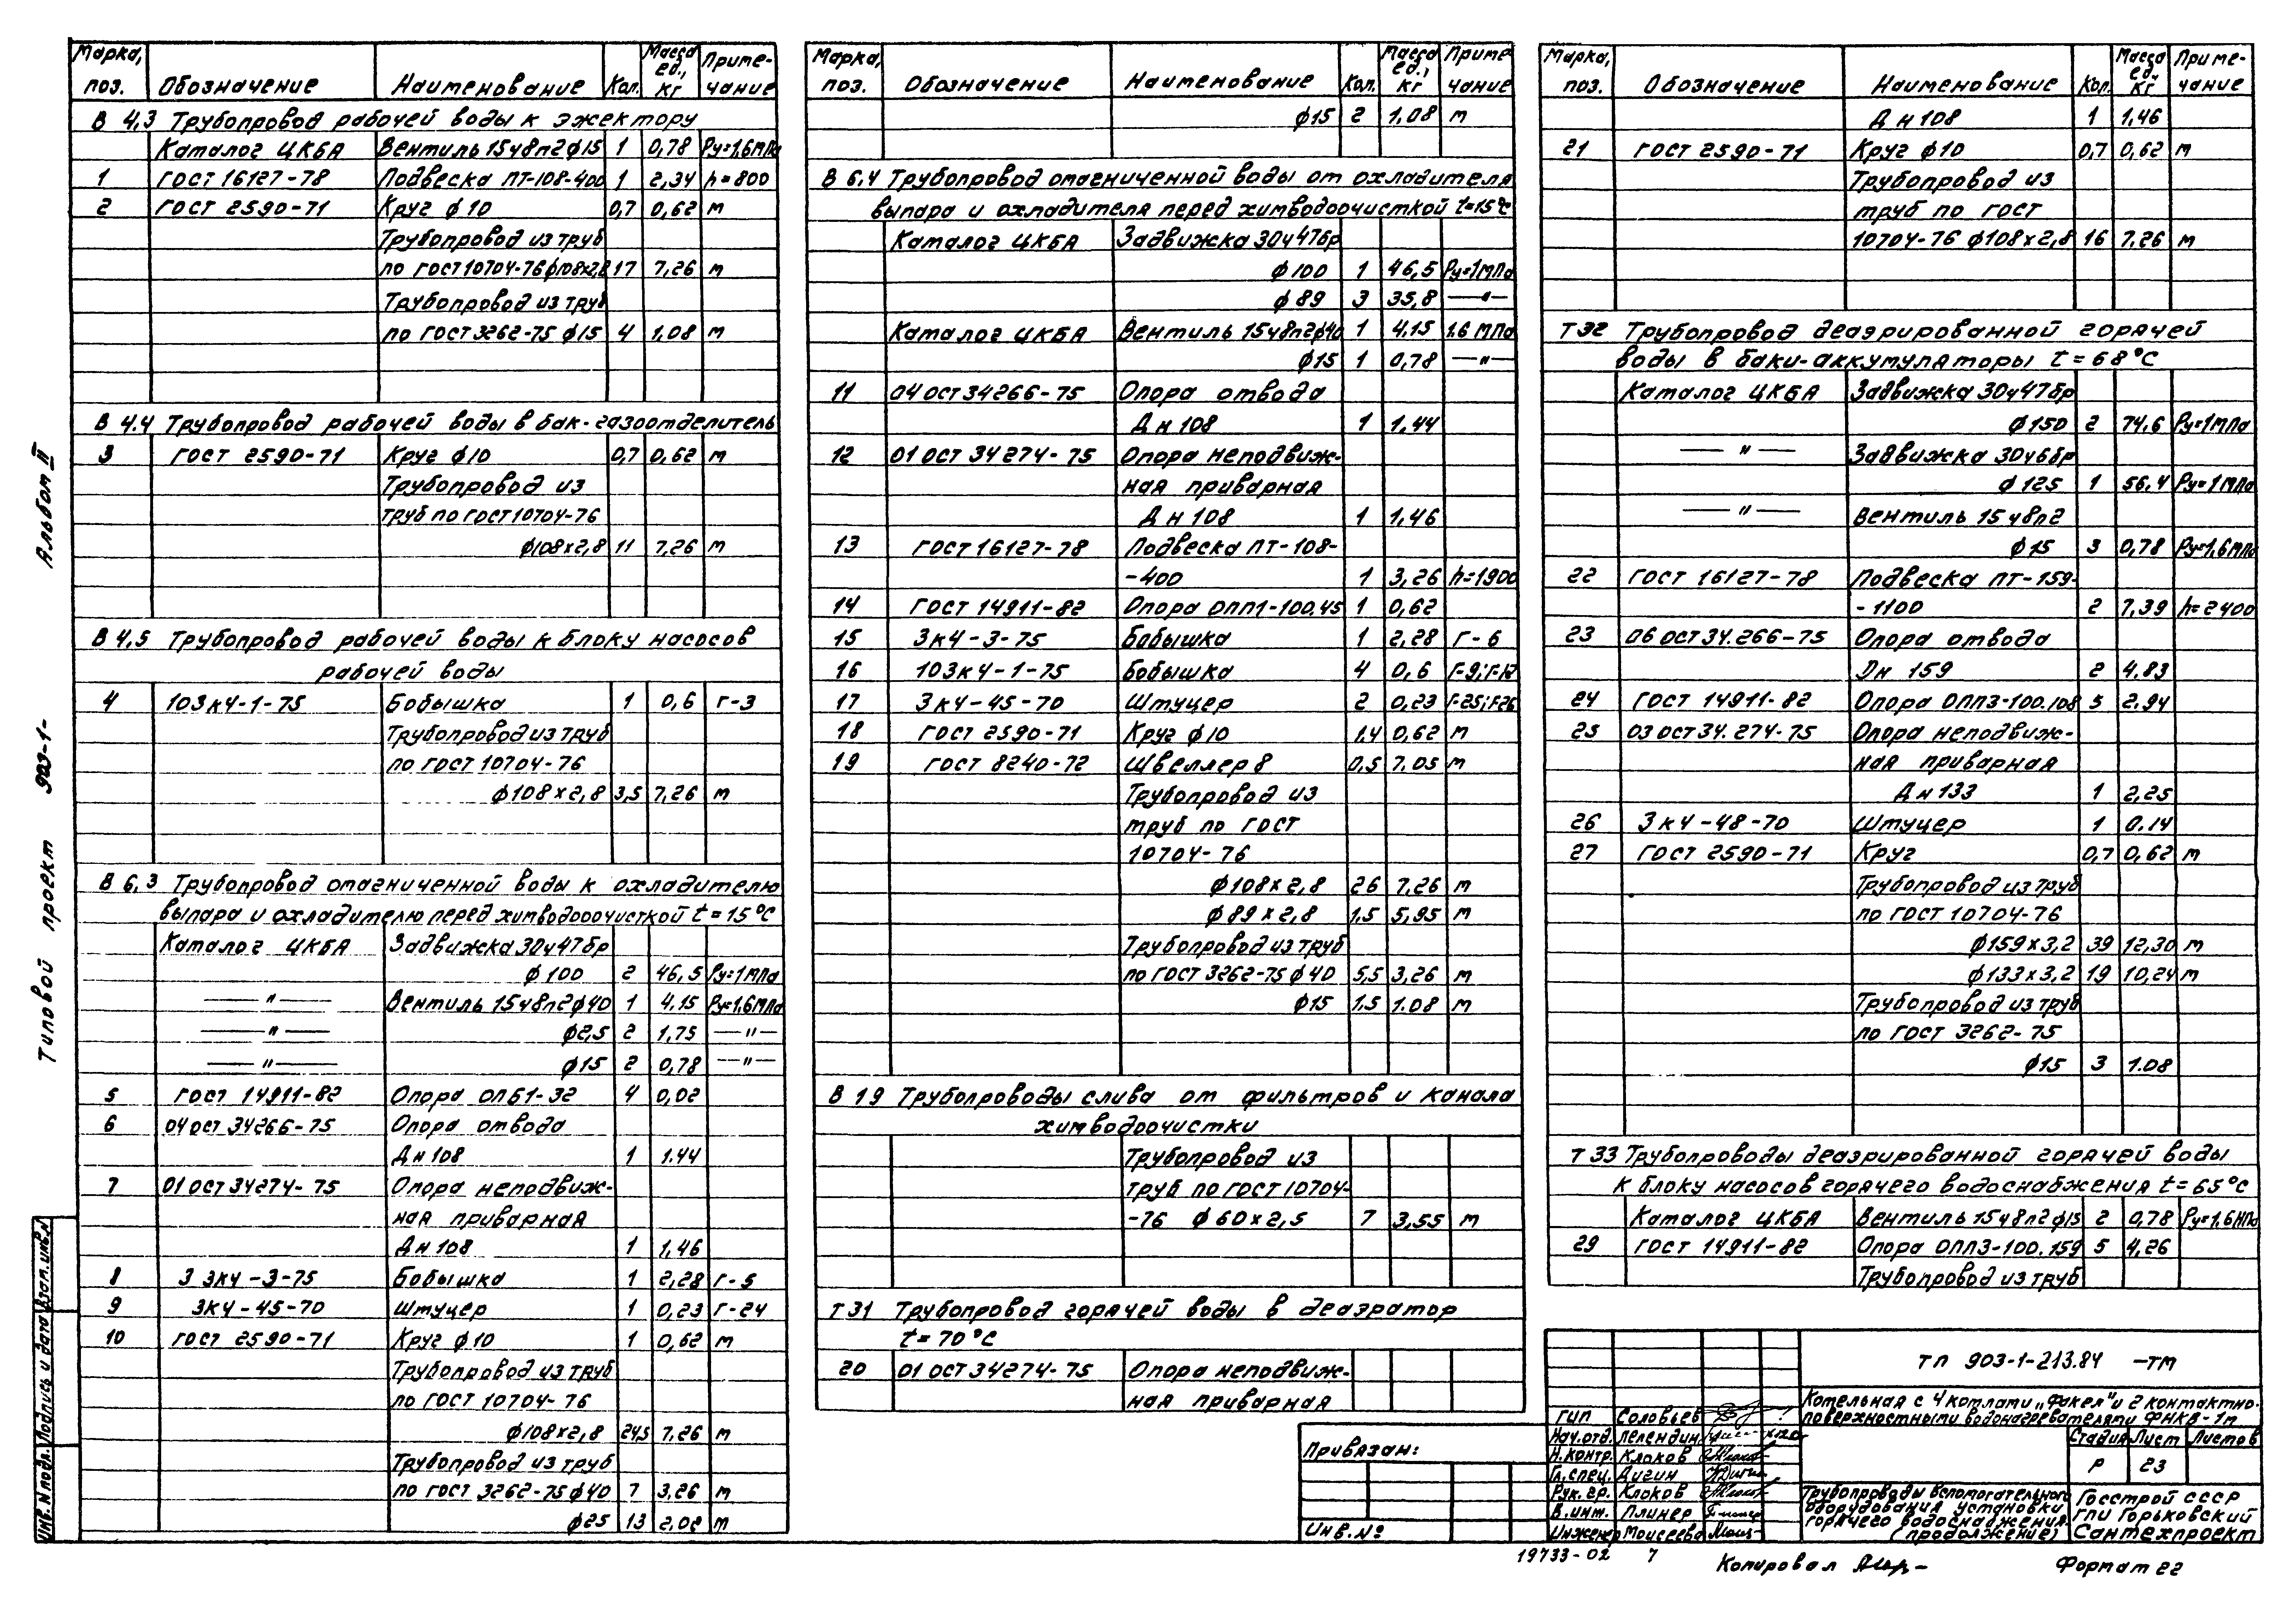 Марка, поз. Обозначение Наименование Кол. Масса ед., кг Приме-чание
В 4,3 Трубопровод рабочей воды к эжектору
Каталог ЦКБА Вентиль 15ч8п2 ф15 1 0,78 Ру=1,6МПа
1 ГОСТ 16127-78 Подвеска ПТ-108-400 1 2,34 h=800
2 ГОСТ 2590-71 Круг ф10 0,7 0,62 м
Трубопровод из труб
по ГОСТ 10704-76 ф108х2,8 17 7,26 м
Трубопровод из труб
по ГОСТ 3262-75 ф15 4 1,08 м
В 4.4 Трубопровод рабочей воды в бак-газоотделитель
3 ГОСТ 2590-71 Круг ф10 0,7 0,62 м
Трубопровод из
труб по ГОСТ 10704-76
ф108х2,8 11 7,26 м
В 4,5 Трубопровод рабочей воды к блоку насосов
рабочей воды
4 103к4-1-75 Бобышка 1 0,6 Г-3
Трубопровод из труб
по ГОСТ 10704-76
ф108х2,8 3,5 7,26 м
В 6,3 Трубопровод омагниченной воды к охладителю
выпара и охладителю перед химводоочисткой t=15°С
Каталог ЦКБА Задвижка 30ч47бр
ф100 2 46,5 Ру=1МПа
—"— Вентиль 15ч8п2 ф40 1 4,15 Ру=1,6МПа
—"— ф25 2 1,75 —"—
—"— ф15 2 0,78 —"—
5 ГОСТ 14911-82 Опора ОПБ1-32 4 0,02
6 04 ОСТ 34266-75 Опора отвода
Дн 108 1 1.44
7 01 ОСТ 34274-75 Опора неподвиж-
ная приварная
Дн 108 1 1,46
8 3 ЗК4-3-75 Бобышка 1 2,28 Г-5
9 ЗК4-45-70 Штуцер 1 0,23 Г-24
10 ГОСТ 2590-71 Круг ф10 1 0,62 м
Трубопровод из труб
по ГОСТ 10704-76
ф108х2,8 24,5 7,26 м
Трубопровод из труб
по ГОСТ 3262-75 ф40 7 3,26 м
ф25 13 2,02 м
Марка, поз. Обозначение Наименование Кол. Масса ед., кг Приме-чание
ф15 2 1,08 м
В 6,4 Трубопровод омагниченной воды от охладителя
выпара и охладителя перед химводоочисткой t=15°С
Каталог ЦКБА Задвижка 30ч47бр
ф100 1 46,5 Ру=1МПа
ф89 3 35,8 —"—
Каталог ЦКБА Вентиль 15ч8п2ф40 1 4,15 1.6 МПа
ф15 1 0,78 —"—
11 04 ОСТ 34266-75 Опора отвода
Дн 108 1 1,44
12 01 ОСТ 34274-75 Опора неподвиж-
ная приварная
Дн 108 1 1,46
13 ГОСТ 16127-78 Подвеска ПТ-108-
-400 1 3,26 h=1900
14 ГОСТ 14911-82 Опора ОПП1-100.45 1 0,62
15 3к4-3-75 Бобышка 1 2,28 Г-6
16 103к4-1-75 Бобышка 4 0,6
17 3к4-45-70 Штуцер 2 0,23 Г-25; Г-26
18 ГОСТ 2590-71 Круг ф10 1,4 0,62 м
19 ГОСТ 8240-72 Швеллер 8 0,5 7.05 м
Трубопровод из
труб по ГОСТ
10704-76
ф108х2,8 26 7,26 м
ф89х2,8 1,5 5,95 м
Трубопровод из труб
по ГОСТ 3262-75 ф40 5,5 3,26 м
ф15 1.5 1.08 м
В 19 Трубопроводы слива от фильтров и канала
химводоочистки
Трубопровод из
труб по ГОСТ 10704-
-76 ф60х2,5 7 3,55 м
Т31 Трубопровод горячей воды в деаэратор
t=70°С
20 01 ОСТ 34274-75 Опора неподвиж-
ная приварная
Марка, поз. Обозначение Наименование Кол. Масса ед., кг Приме-чание
Дн 108 1 1,46
21 ГОСТ 2590-71 Круг ф10 0,7 0,62 м
Трубопровод из
труб по ГОСТ
10704-76 ф108х2,8 16 7,26 м
Т32 Трубопровод деаэрированной горячей
воды в баки-аккумуляторы t=68°С
Каталог ЦКБА Задвижка 30ч47бр
ф150 2 74,6 Ру=1МПа
—"— Задвижка 30ч6бр
ф125 1 56,4 Ру=1МПа
—"— Вентиль 15ч8п2
ф15 3 0,78 Ру=1,6МПа
22 ГОСТ 16127-78 Подвеска ПТ-159-
-1100 2 7,39 h=2400
23 06 ОСТ 34.266-75 Опора отвода
Дн 159 2 4.83
24 ГОСТ 14911-82 Опора ОПП3-100.108 5 2.94
25 03 ОСТ 34.274-75 Опора неподвиж-
ная приварная
Дн 133 1 2,25
26 3к4-48-70 Штуцер 1 0.14
27 ГОСТ 2590-71 Круг 0,7 0,62 м
Трубопровод из труб
по ГОСТ 10704-76
ф159х3,2 39 12,30 м
ф133х3,2 19 10,24 м
Трубопровод из труб
по ГОСТ 3262-75
ф15 3 1.08
Т33 Трубопроводы деаэрированной горячей воды
к блоку насосов горячего водоснабжения t=65°С
Каталог ЦКБА Вентиль 15ч8п2 ф15 2 0,78 Ру=1.6МПа
29 ГОСТ 14911-82 Опора ОПП3-100.159 5 4,26
Трубопровод из труб
Типовой проект 903-1- Альбом II
Инв.N подл. Подпись и дата Взам.инв.N
Привязан:
Инв.№
ТП 903-1-213.84 -ТМ
Котельная с 4 котлами „Факел" и 2 контактно-
поверхностными водонагревателями ФНКВ-1м
ГИП Соловьев
Нач.отд. Лепендин
Н.контр. Клоков
Гл.спец. Дигин
Рук. гр. Клоков
В.инж. Плинер
Инженер Моисеева
Стадия Лист Листов
Р 23
Трубопроводы вспомогательного
оборудования установки
горячего водоснабжения
(продолжение)
Госстрой СССР
ГПИ Горьковский
Сантехпроект
19733-02 7
Копировал
Формат 22